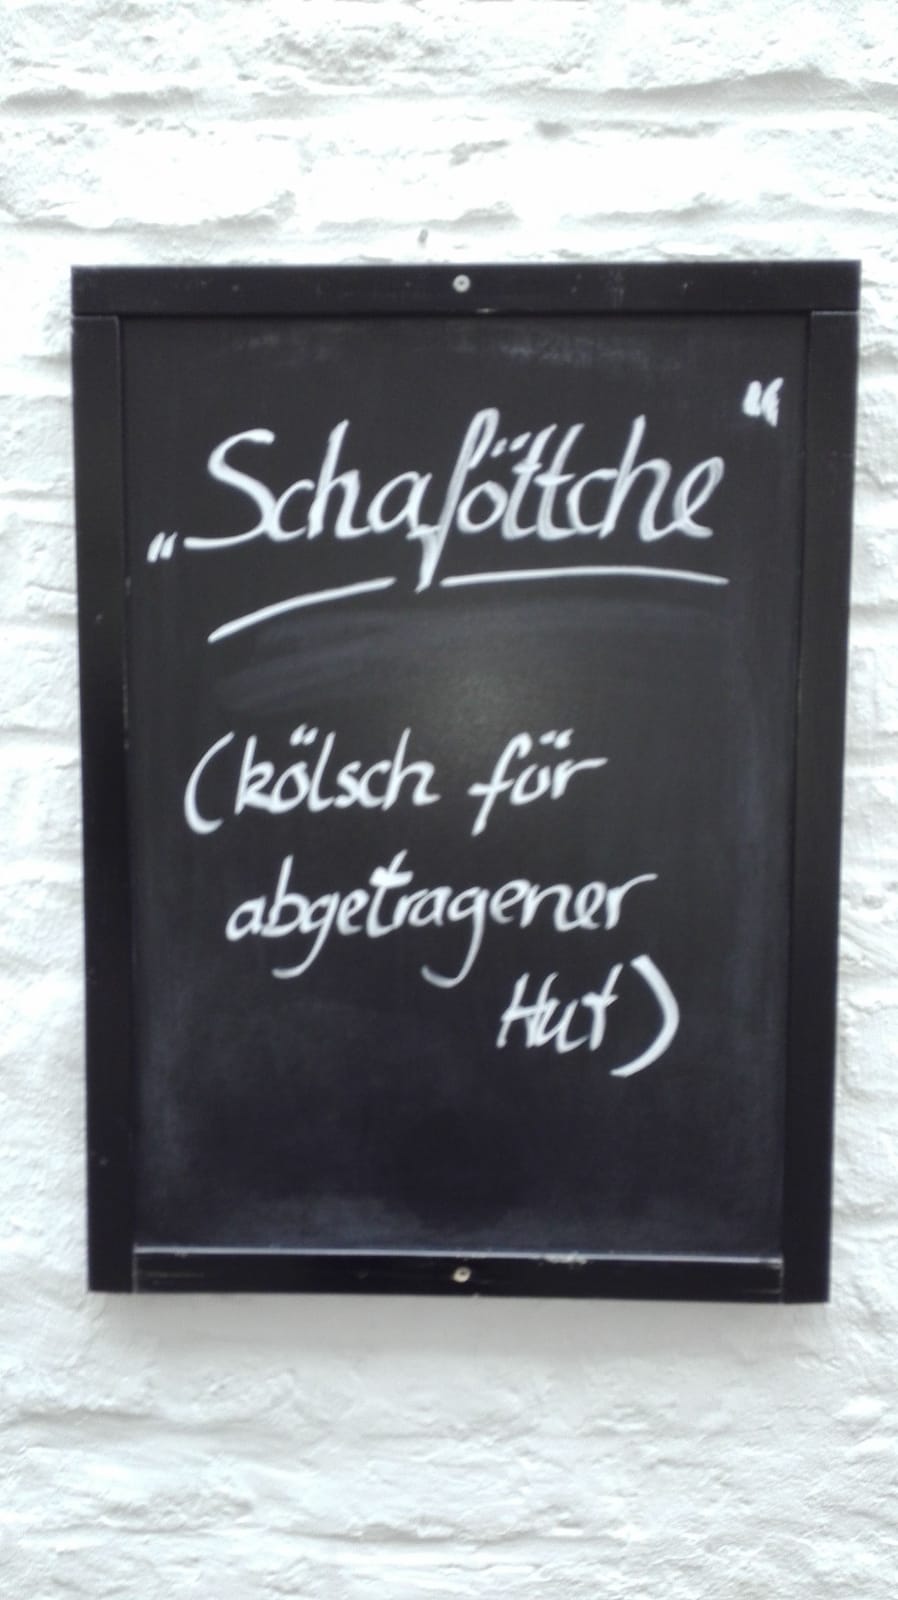 „Schaföttche“
(kölsch für
abgetragener
Hut)